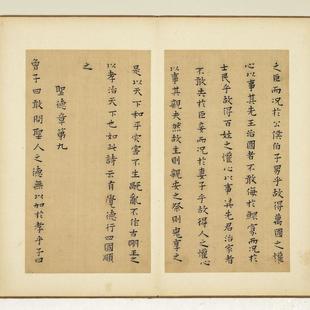 之臣而況於公侯伯子男乎故得萬國之懽
心以事其先王治國者不敢侮於鰥寡而況於
士民乎故得百姓之懽心以事其先君治家者
不敢失於臣妾而況於妻子乎故得人之懽心
以事其親夫然故生則親安之祭則鬼享之
是以天下和平灾害不生禍亂不作故明王之
以孝治天下也如此詩云有覺德行四國順
之
聖德章第九
曾子曰敢問聖人之德無以加於孝乎子曰